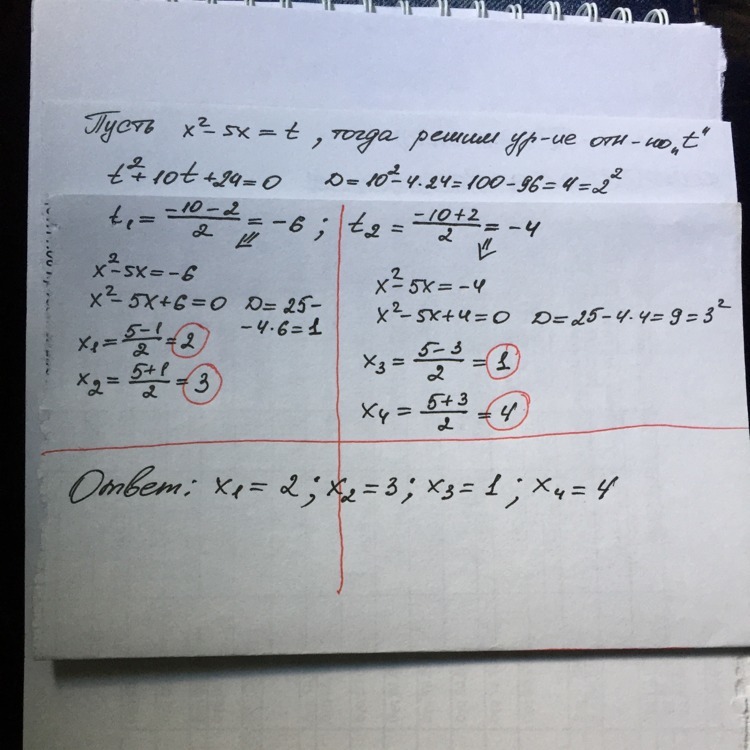 Пусть x² - 5x = t, тогда решим ур-ие отн-но „t"
t² + 10t + 24 = 0 D = 10² - 4·24 = 100 - 96 = 4 = 2²
t₁ = (-10 - 2)/2 = -6 ; t₂ = (-10 + 2)/2 = -4
x² - 5x = -6
x² - 5x + 6 = 0 D = 25 -
- 4·6 = 1
x₁ = (5 - 1)/2 = 2
x₂ = (5 + 1)/2 = 3
x² - 5x = -4
x² - 5x + 4 = 0 D = 25 - 4·4 = 9 = 3²
x₃ = (5 - 3)/2 = 1
x₄ = (5 + 3)/2 = 4
Ответ: x₁ = 2 ; x₂ = 3 ; x₃ = 1 ; x₄ = 4